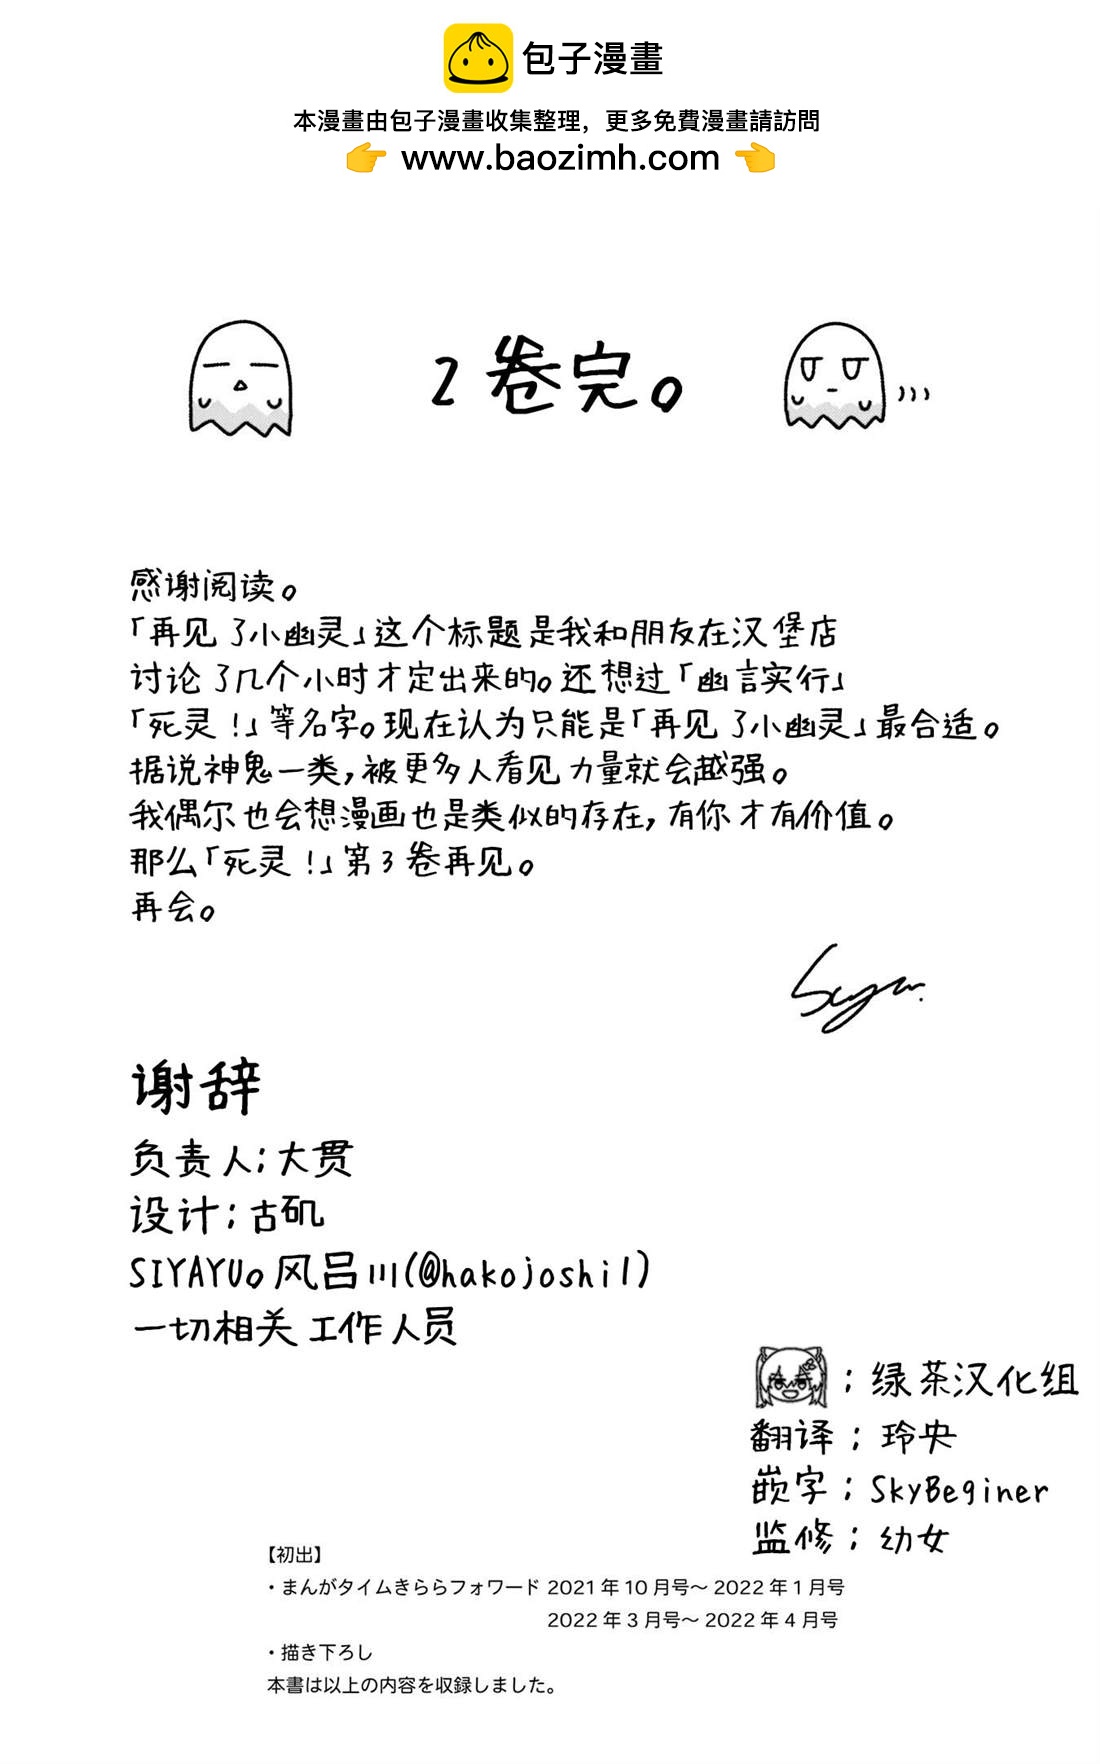 包子漫畫
本漫畫由包子漫畫收集整理，更多免費漫畫請訪問
👉 www.baozimh.com 👈
2卷完。
感谢阅读。
「再见了小幽灵」这个标题是我和朋友在汉堡店
讨论了几个小时才定出来的。还想过「幽言实行」
「死灵！」等名字。现在认为只能是「再见了小幽灵」最合适。
据说神鬼一类，被更多人看见力量就会越强。
我偶尔也会想漫画也是类似的存在，有你才有价值。
那么「死灵！」第3卷再见。
再会。
谢辞
负责人；大贯
设计；古矶
SIYAYU。风吕川(@hakojoshi1)
一切相关工作人员
；绿茶汉化组
翻译；玲央
嵌字；SkyBeginer
监修；幼女
【初出】
・まんがタイムきららフォワード 2021年10月号～2022年1月号
2022年3月号～2022年4月号
・描き下ろし
本書は以上の内容を収録しました。